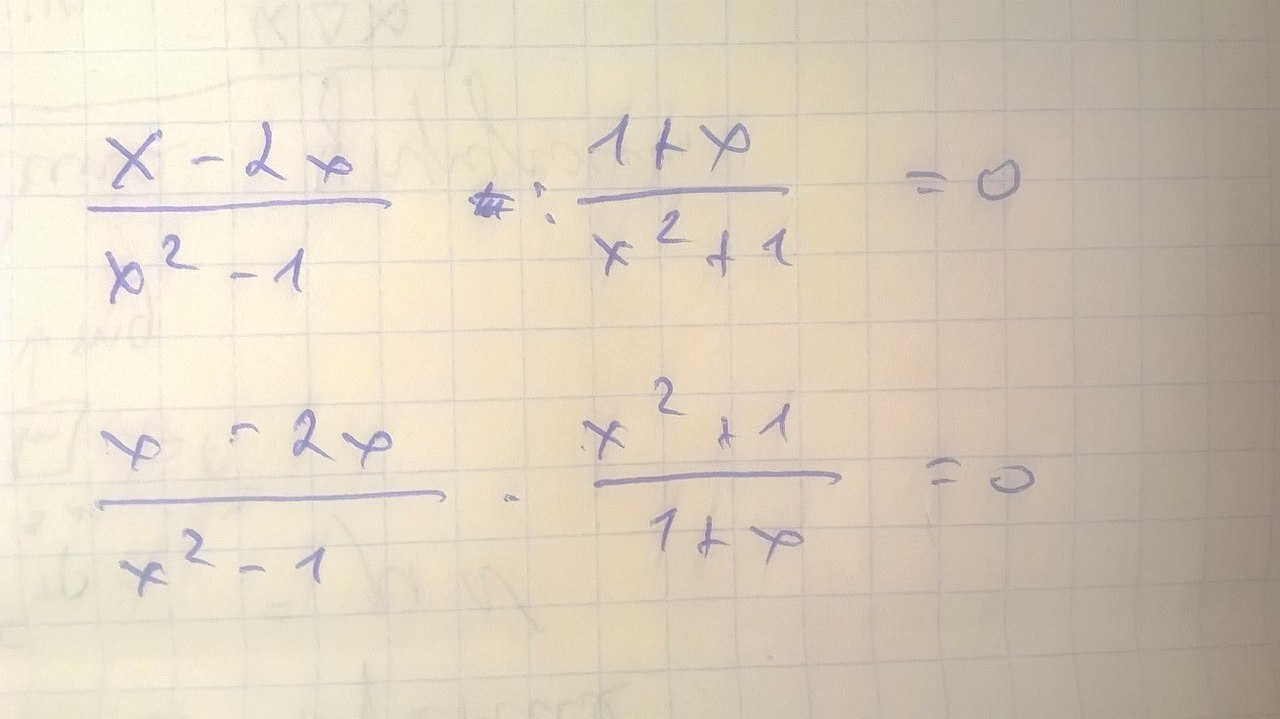 (x - 2x)/(x² - 1) : (1 + x)/(x² + 1) = 0
(x - 2x)/(x² - 1) · (x² + 1)/(1 + x) = 0